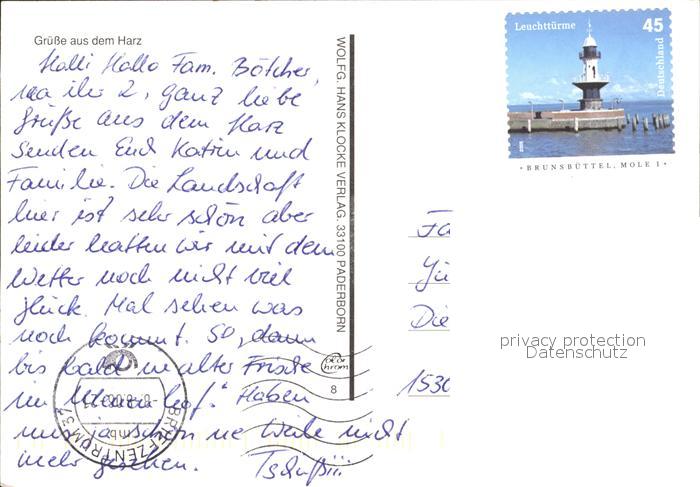 Grüße aus dem Harz
Halli Hallo Fam. Bötcher,
na ihr 2, ganz liebe
Grüße aus dem Harz
senden Euch Katrin und
Familie. Die Landschaft
hier ist sehr schön aber
leider hatten wir mit dem
Wetter noch nicht viel
Glück. Mal sehen was
noch kommt. So, dann
bis bald in alter Frische
im hof." Haben
uns ja schon ne Weile nicht
mehr gesehen. Tschüß...
WOLFG. HANS KLOCKE VERLAG. 33100 PADERBORN
8
BRIEFZENTRUM 37
Leuchttürme
45
Deutschland
BRUNSBÜTTEL, MOLE 1
Fa
Jü
Die
1530
privacy protection
Datenschutz